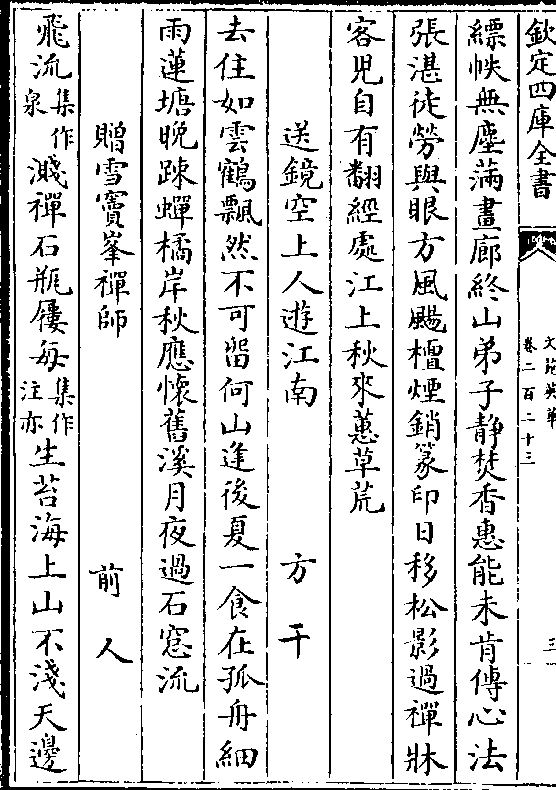 欽定四庫全書
文苑英華
卷二百二十三
三
縹帙無塵滿畫廊終山弟子靜焚香惠能未肯傳心法
張湛徒勞與眼方風颺檀煙銷篆印日移松影過禪牀
客兒自有翻經處江上秋來蕙草荒
送鏡空上人遊江南
方干
去住如雲鶴飄然不可留何山逢後夏一食在孤舟細
雨蓮塘晚踈蟬橘岸秋應懷舊溪月夜過石窓流
贈雪竇峯禪師
前人
飛流集作泉濺禪石瓶屢每集作注亦生苔海上山不淺天邊